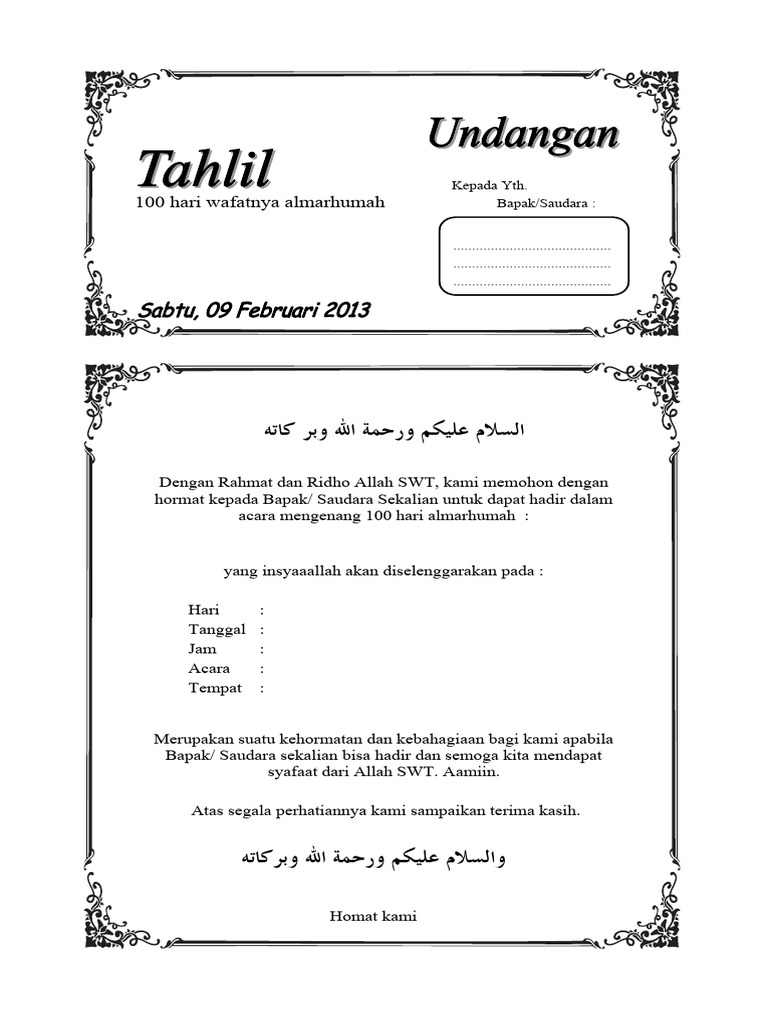 Tahlil
100 hari wafatnya almarhumah
Sabtu, 09 Februari 2013
Undangan
Kepada Yth.
Bapak/Saudara :
........................................
........................................
........................................
السلام عليكم ورحمة الله وبر كاته
Dengan Rahmat dan Ridho Allah SWT, kami memohon dengan
hormat kepada Bapak/ Saudara Sekalian untuk dapat hadir dalam
acara mengenang 100 hari almarhumah  :
yang insyaaallah akan diselenggarakan pada :
Hari :
Tanggal :
Jam :
Acara :
Tempat :
Merupakan suatu kehormatan dan kebahagiaan bagi kami apabila
Bapak/ Saudara sekalian bisa hadir dan semoga kita mendapat
syafaat dari Allah SWT. Aamiin.
Atas segala perhatiannya kami sampaikan terima kasih.
والسلام عليكم ورحمة الله وبركاته
Homat kami